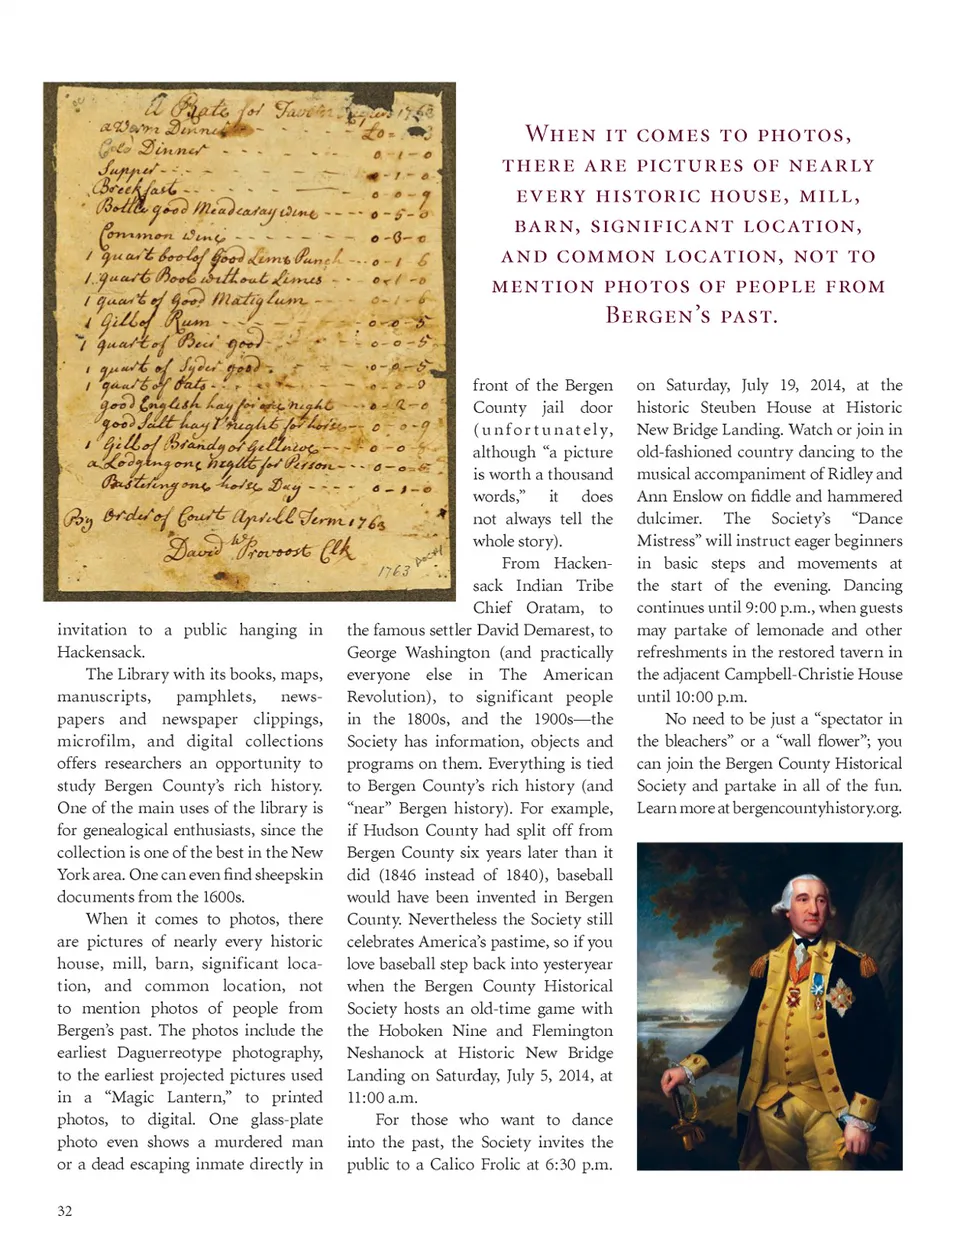 A Rate for Tavern Keepers 1763
a Warm Dinner - - - - £0 - - 3
Cold Dinner - - - - - - 0 - 1 - 0
Supper - - - - - - - 1 - 0
Breekfast - - - - - - - 0 - 0 - 9
Bottle good Meadearay wine - - - - 0 - 5 - 0
Common wine - - - - - - 0 - 3 - 0
1 quart bool of Good Lime Punch - - - 0 - 1 - 6
1 quart Bool without Limes - - - 0 - 1 - 0
1 quart of Good Matiglum - - - 0 - 1 - 6
1 Gill of Rum - - - - - - 0 - 0 - 5
1 quart of Beir good - - - - 0 - 0 - 5
1 quart of Syder good - - - - 0 - 0 - 5
1 quart of Oats - - - - - 0 - 0 - 9
good English hay for one night - - - 0 - 2 - 0
good Salt hay 1 night for horse - - 0 - 0 - 9
1 Gill of Brandy or - - 0 - 0
a Lodging one Night for Person - - - 0 - 0
Pastering one horse Day - - - 0 - 1 - 0
By Order of Court Aprill Term 1763
David Wm Provoost Clk
1763
When it comes to photos,
there are pictures of nearly
every historic house, mill,
barn, significant location,
and common location, not to
mention photos of people from
Bergen’s past.
invitation to a public hanging in
Hackensack.
The Library with its books, maps,
manuscripts, pamphlets, news-
papers and newspaper clippings,
microfilm, and digital collections
offers researchers an opportunity to
study Bergen County’s rich history.
One of the main uses of the library is
for genealogical enthusiasts, since the
collection is one of the best in the New
York area. One can even find sheepskin
documents from the 1600s.
When it comes to photos, there
are pictures of nearly every historic
house, mill, barn, significant loca-
tion, and common location, not
to mention photos of people from
Bergen’s past. The photos include the
earliest Daguerreotype photography,
to the earliest projected pictures used
in a “Magic Lantern,” to printed
photos, to digital. One glass-plate
photo even shows a murdered man
or a dead escaping inmate directly in
front of the Bergen
County jail door
(unfortunately,
although “a picture
is worth a thousand
words,” it does
not always tell the
whole story).
From Hacken-
sack Indian Tribe
Chief Oratam, to
the famous settler David Demarest, to
George Washington (and practically
everyone else in The American
Revolution), to significant people
in the 1800s, and the 1900s—the
Society has information, objects and
programs on them. Everything is tied
to Bergen County’s rich history (and
“near” Bergen history). For example,
if Hudson County had split off from
Bergen County six years later than it
did (1846 instead of 1840), baseball
would have been invented in Bergen
County. Nevertheless the Society still
celebrates America’s pastime, so if you
love baseball step back into yesteryear
when the Bergen County Historical
Society hosts an old-time game with
the Hoboken Nine and Flemington
Neshanock at Historic New Bridge
Landing on Saturday, July 5, 2014, at
11:00 a.m.
For those who want to dance
into the past, the Society invites the
public to a Calico Frolic at 6:30 p.m.
on Saturday, July 19, 2014, at the
historic Steuben House at Historic
New Bridge Landing. Watch or join in
old-fashioned country dancing to the
musical accompaniment of Ridley and
Ann Enslow on fiddle and hammered
dulcimer. The Society’s “Dance
Mistress” will instruct eager beginners
in basic steps and movements at
the start of the evening. Dancing
continues until 9:00 p.m., when guests
may partake of lemonade and other
refreshments in the restored tavern in
the adjacent Campbell-Christie House
until 10:00 p.m.
No need to be just a “spectator in
the bleachers” or a “wall flower”; you
can join the Bergen County Historical
Society and partake in all of the fun.
Learn more at bergencountyhistory.org.
32